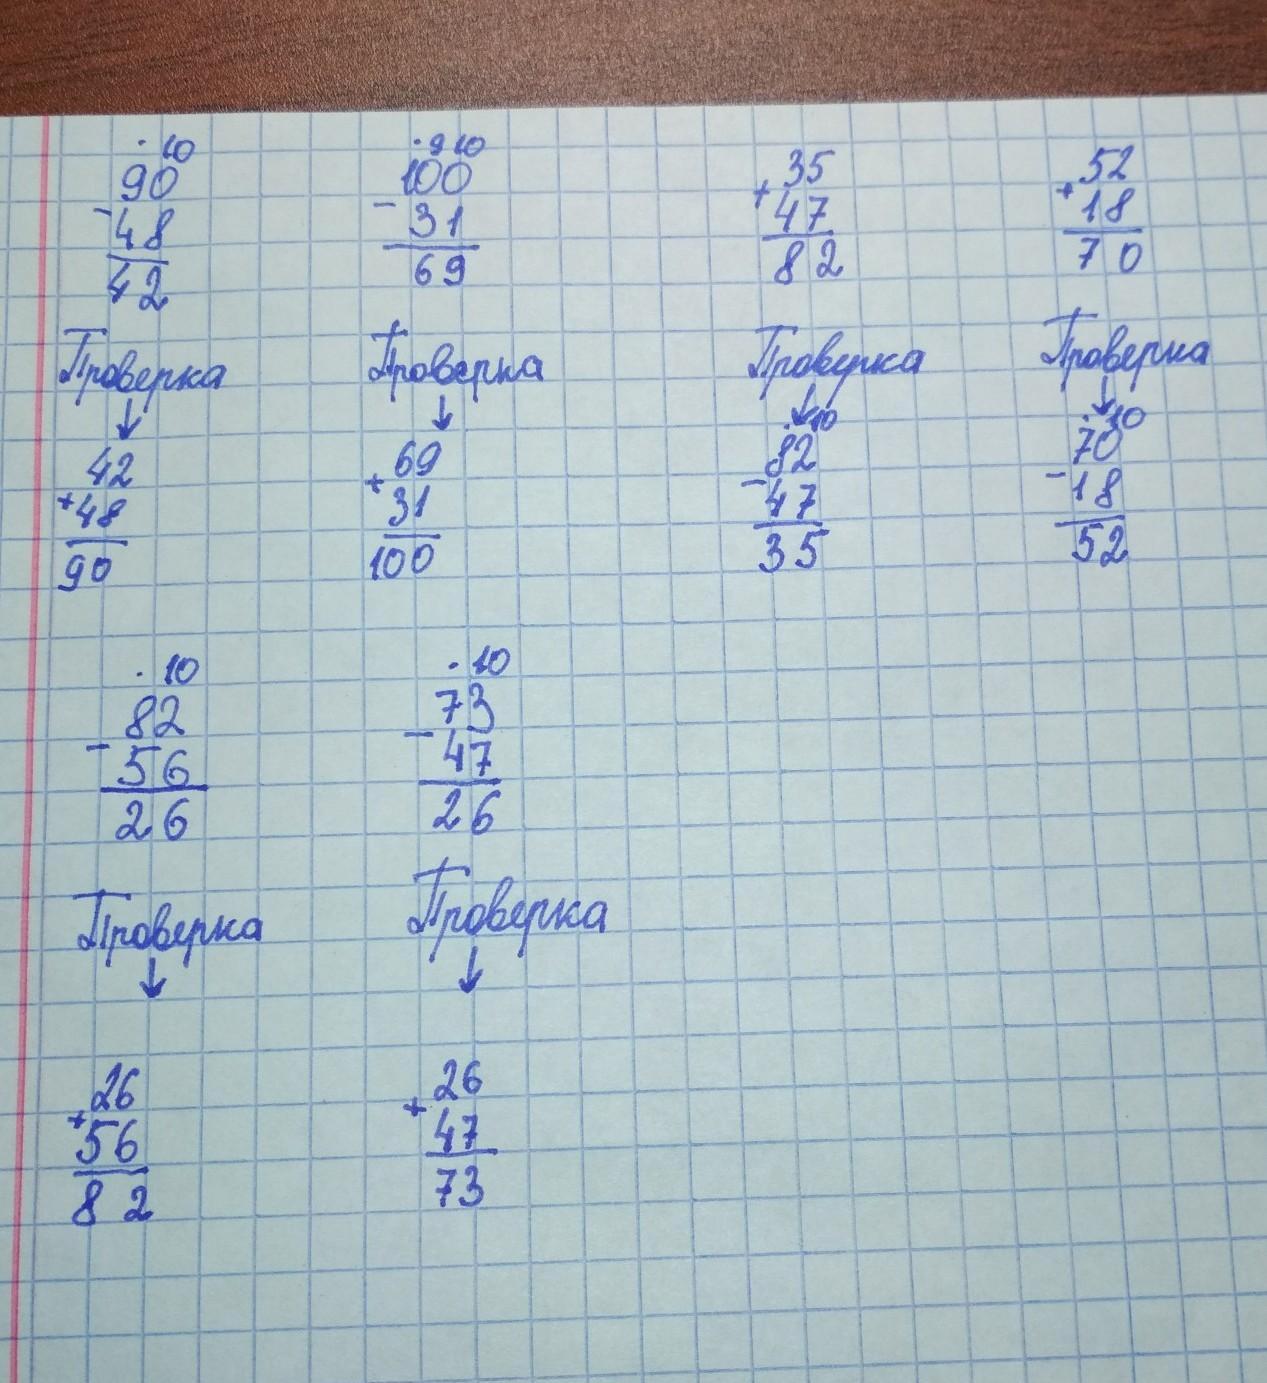 · 10
90
-
48
42
Проверка
↓
42
+
48
90
· 9 10
100
-
31
69
Проверка
↓
69
+
31
100
35
+
47
82
Проверка
↓
· 10
82
-
47
35
52
+
18
70
Проверка
↓
· 10
70
-
18
52
· 10
82
-
56
26
Проверка
↓
26
+
56
82
· 10
73
-
47
26
Проверка
↓
26
+
47
73